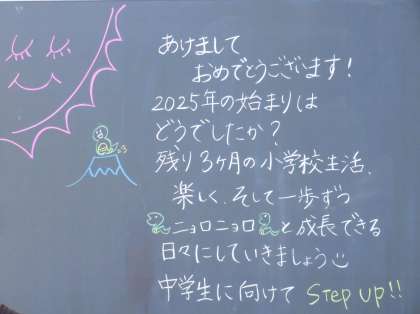 あけまして
おめでとうございます!
2025年の始まりは
どうでしたか?
残り3ヶ月の小学校生活、
楽しく、そして一歩ずつ
ニョロニョロと成長できる
日々にしていきましょう
中学生に向けて Step up!!